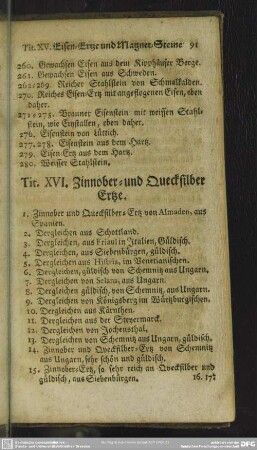 Tit. XV. Eisen-Ertze und Magnet-Steine 91
260. Gewachsen Eisen aus dem Kipphäuser Berge.
261. Gewachsen Eisen aus Schweden.
262:269. Reicher Stahlstein von Schmalkalden.
270. Reiches Eisen-Ertz mit angeflogenen Eisen, eben
daher.
271:275. Brauner Eisenstein mit weissen Stahl-
stein, wie Crystallen, eben daher.
276. Eisenstein von Lüttich.
277.278. Eisenstein aus dem Hartz.
279. Eisen-Ertz aus dem Hartz.
280. Weisser Stahlstein.
Tit. XVI. Zinnober- und Quecksilber
Ertze.
1. Zinnober und Quecksilber-Ertz von Almaden, aus
Spanien.
2. Dergleichen aus Schottland.
3. Dergleichen, aus Friaul in Italien, Güldisch.
4. Dergleichen, aus Siebenbürgen, güldisch.
5. Dergleichen aus Histria, im Venetianischen.
6. Dergleichen, güldisch von Schemnitz aus Ungarn.
7. Dergleichen von Solana, aus Ungarn.
8. Dergleichen güldisch, von Schemnitz, aus Ungarn.
9. Dergleichen von Königsberg im Würtzburgischen.
10. Dergleichen aus Kärnthen.
11. Dergleichen aus der Steyermarck.
12. Dergleichen von Jochenthal.
13. Dergleichen von Schemnitz aus Ungarn, güldisch.
14. Zinnober und Qvecksilber-Ertz von Schemnitz
aus Ungarn, sehr schön und güldisch.
15. Zinnober-Ertz, so sehr reich an Qvecksilber und
güldisch, aus Siebenbürgen.
16. 17.